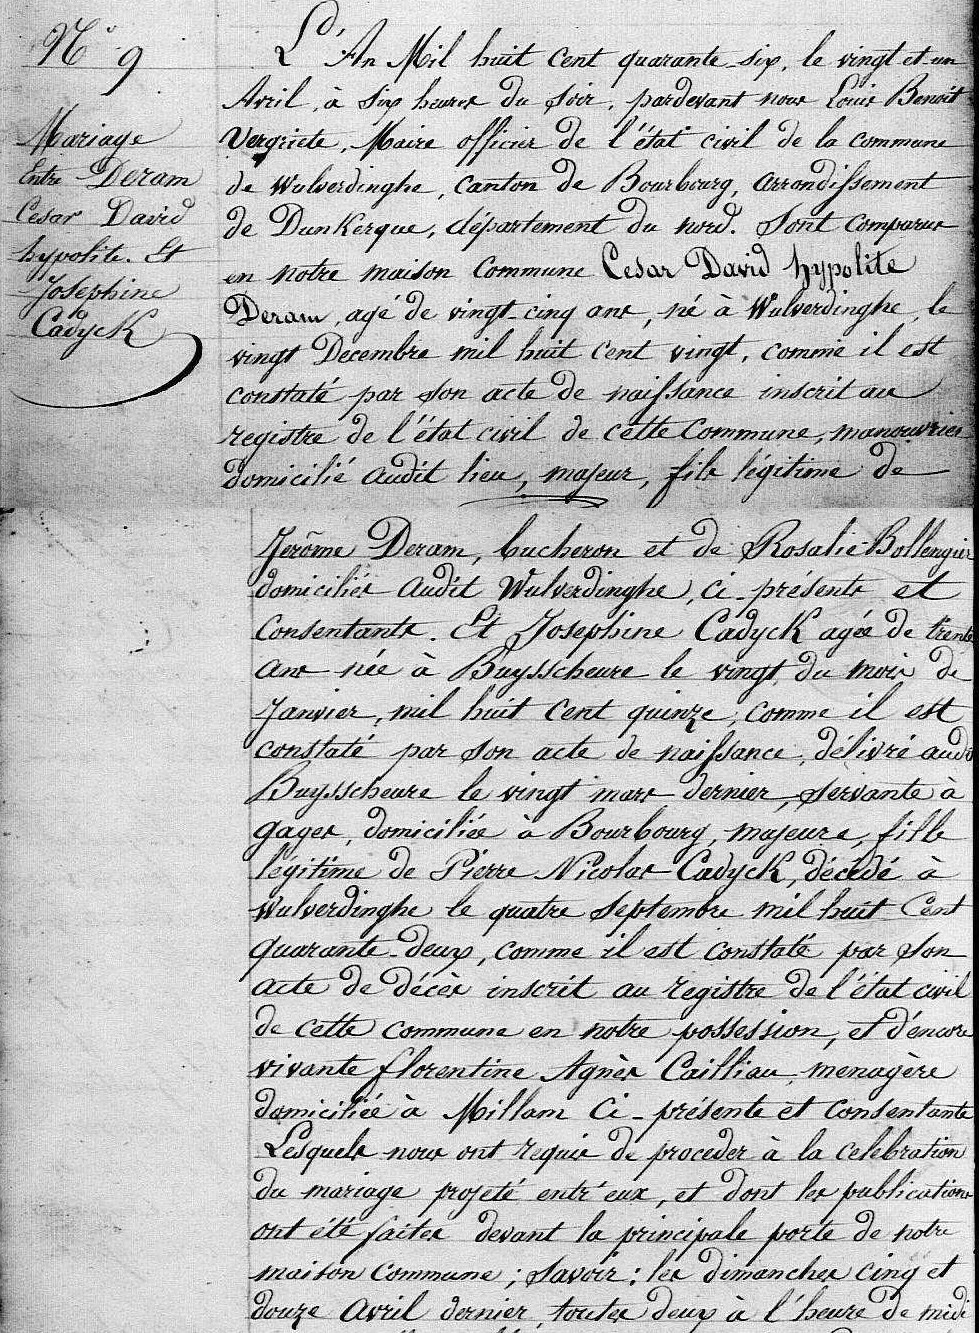 N° 9
Mariage
Entre Deram
Cesar David
hypolite. Et
Josephine
Cadyck
L'An Mil huit Cent quarante-six, le vingt et un
Avril, à Six heures du Soir, pardevant nous Louis Benoit
Vergriete, Maire officier de l'état civil de la commune
de Wulverdinghe, canton de Bourbourg, arrondissement
de Dunkerque, département du nord. Sont comparus
en notre maison Commune Cesar David hypolite
Deram, agé de vingt-cinq ans, né à Wulverdinghe, le
vingt Decembre mil huit cent vingt, comme il est
constaté par son acte de naissance inscrit au
registre de l'état civil de cette Commune, manouvrier
domicilié audit lieu, majeur, fils légitime de
Jerôme Deram, bucheron et de Rosalie Bollengier
domiciliés audit Wulverdinghe, ci-présents et
Consentants. Et Josephine Cadyck agée de trente
ans née à Buysscheure le vingt du mois de
Janvier, mil huit Cent quinze, comme il est
constaté par son acte de naissance, délivré audit
Buysscheure le vingt mars dernier, servante à
gages, domiciliée à Bourbourg, majeure, fille
légitime de Pierre Nicolas Cadyck, décédé à
Wulverdinghe le quatre Septembre mil huit Cent
quarante-deux, comme il est constaté par son
acte de décès inscrit au registre de l'état civil
de cette commune en notre possession, et d'encore
vivante florentine Agnès Cailliau, menagère
domiciliée à Millam ci-présente et consentante
Lesquels nous ont requis de proceder à la celebration
du mariage projeté entr'eux, et dont les publications
ont été faites devant la principale porte de notre
maison Commune; Savoir: les dimanches cinq et
douze avril dernier, toutes deux à l'heure de midi